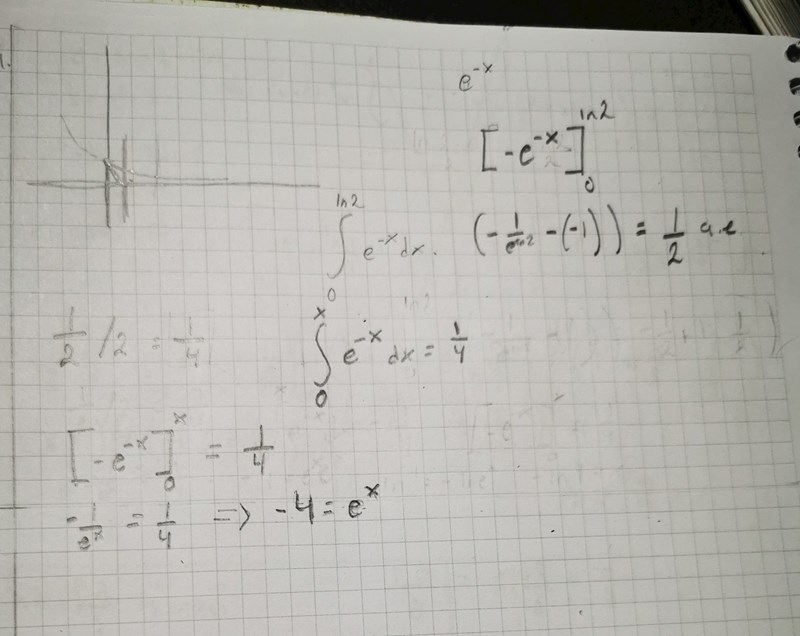 1.
e^-x
[-e^-x]_0^ln2
∫_0^ln2 e^-x dx. (-1/e^ln2 -(-1)) = 1/2 a.e
1/2 /2 = 1/4
∫_0^x e^-x dx = 1/4
[-e^-x]_0^x = 1/4
-1/e^x = 1/4 => -4 = e^x